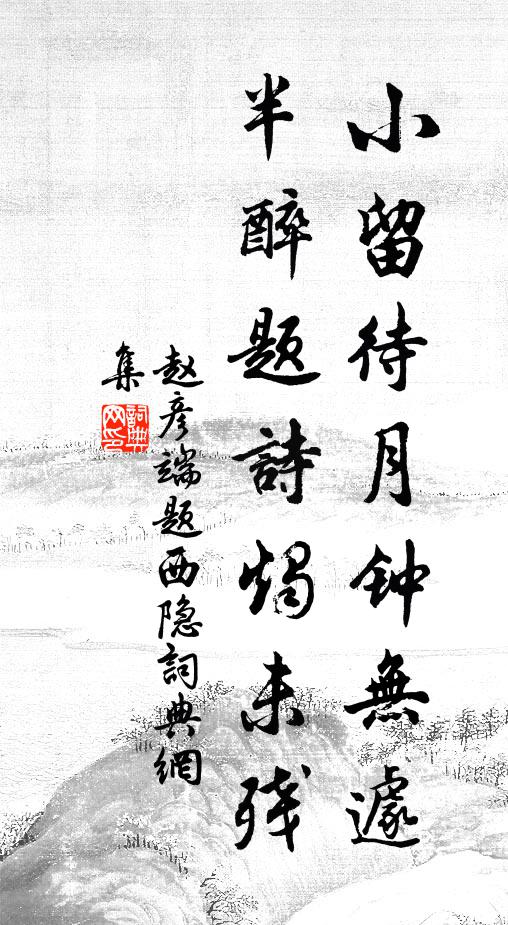 小留待月钟無遽
半醉题詩燭未残
赵彦端题西隐詞典網
集
詞典网印